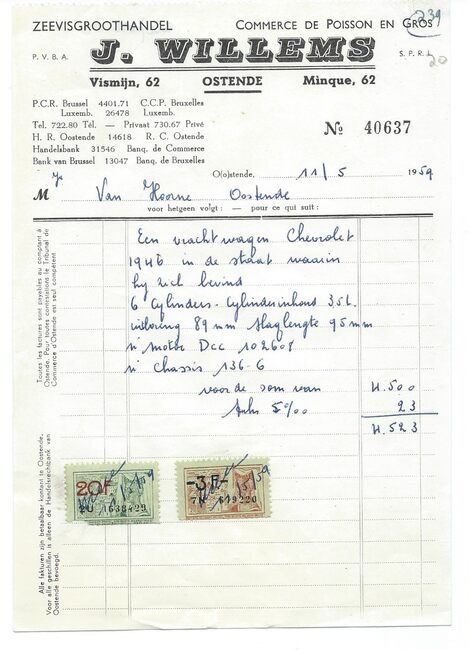 239
20
ZEEVISGROOTHANDEL COMMERCE DE POISSON EN GROS
P. V. B. A. J. WILLEMS S. P. R. L.
Vismijn, 62 OSTENDE Minque, 62
P.C.R. Brussel 4401.71 C.C.P. Bruxelles
Luxemb. 26478 Luxemb.
Tel. 722.80 Tél. — Privaat 730.67 Privé
H. R. Oostende 14618 R. C. Ostende
Handelsbank 31546 Banq. de Commerce
Bank van Brussel 13047 Banq. de Bruxelles
No 40637
O(o)stende, 11/5 1959
M Van Hoorne Oostende
voor hetgeen volgt : — pour ce qui suit :
Een vrachtwagen Chevrolet
1946 in de staat waarin
hij zich bevind
6 Cylinders - Cylinderinhoud 35L.
89 mm Slaglengte 95 mm
n° motor Dcc 102608
n° chassis 136-6
voor de som van 4.500
5%00 23
4.523
Toutes les factures sont payables au comptant à
Ostende. Pour toutes contestations le Tribunal de
Commerce d'Ostende est seul compétent
Alle fakturen zijn betaalbaar kontant te Oostende.
Voor alle geschillen is alleen de Handelsrechtbank van
Oostende bevoegd.
20F
2U 1638429
11/5/59
-3F-
7N 619220
11/5/59